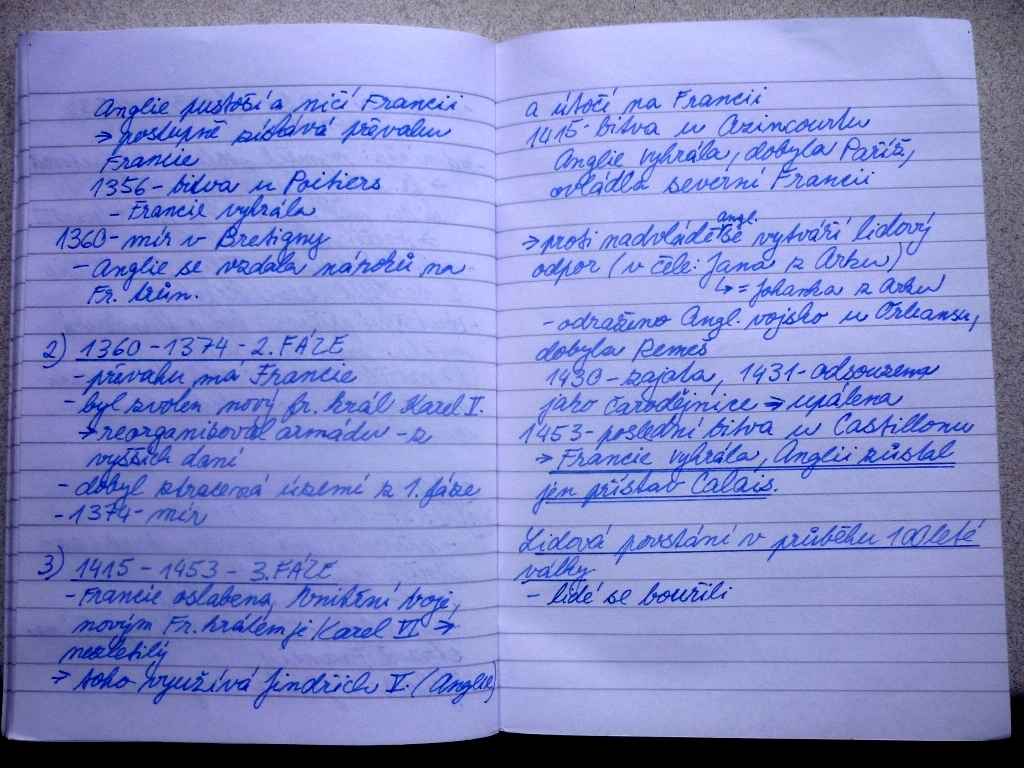 Anglie pustoší a ničí Francii
→ postupně získává převahu
Francie
1356 - bitva u Poitiers
- Francie vyhrála
1360 - mír v Bretigny
- Anglie se vzdala nároků na
Fr. trůn.
2) 1360 - 1374 - 2. FÁZE
- převahu má Francie
- byl zvolen nový fr. král Karel V.
→ reorganizoval armádu - z
vyšších daní
- dobyl ztracená území z 1. fáze
- 1374 - mír
3) 1415 - 1453 - 3. FÁZE
- Francie oslabena, vnitřní boje,
novým Fr. králem je Karel VI →
nezletilý
→ toho využívá Jindřich V. (Anglie)
a útočí na Francii
1415 - bitva u Azincourtu
Anglie vyhrála, dobyla Paříž,
ovládla severní Francii
→ proti nadvládě angl. se vytváří lidový
odpor (v čele: Jana z Arku)
↳ = Johanka z Arku
- odraženo Angl. vojsko u Orleansu,
dobyla Remeš
1430 - zajata, 1431 - odsouzena
jako čarodějnice → upálena
1453 - poslední bitva u Castillonu
→ Francie vyhrála, Anglii zůstal
jen přístav Calais.
Lidová povstání v průběhu 100leté
války
- lidé se bouřili